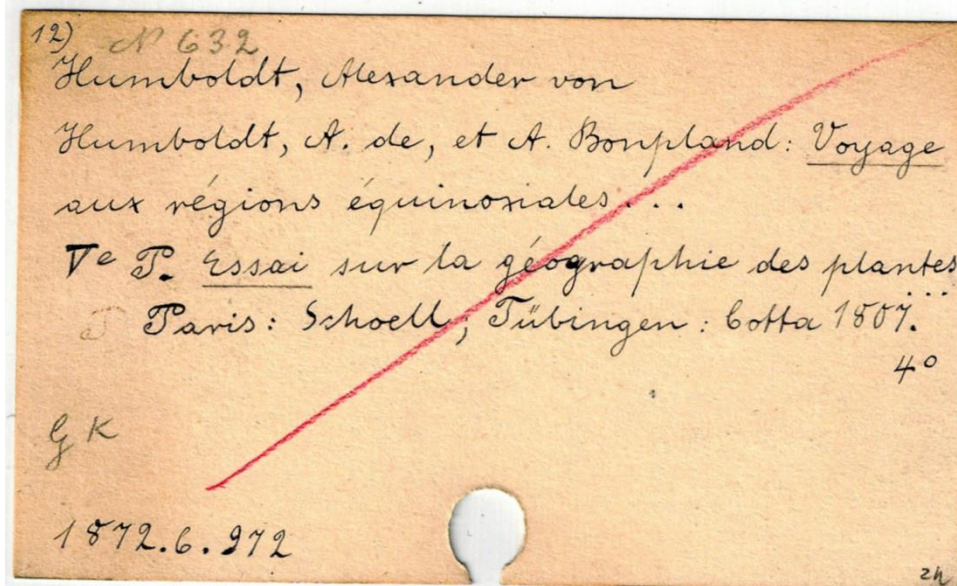 12) N 632
Humboldt, Alexander von
Humboldt, A. de, et A. Bonpland: Voyage
aux régions équinoxiales...
Ve P. Essai sur la géographie des plantes
...
Paris: Schoell; Tübingen: Cotta 1807.
4°
G K
1872.6.972